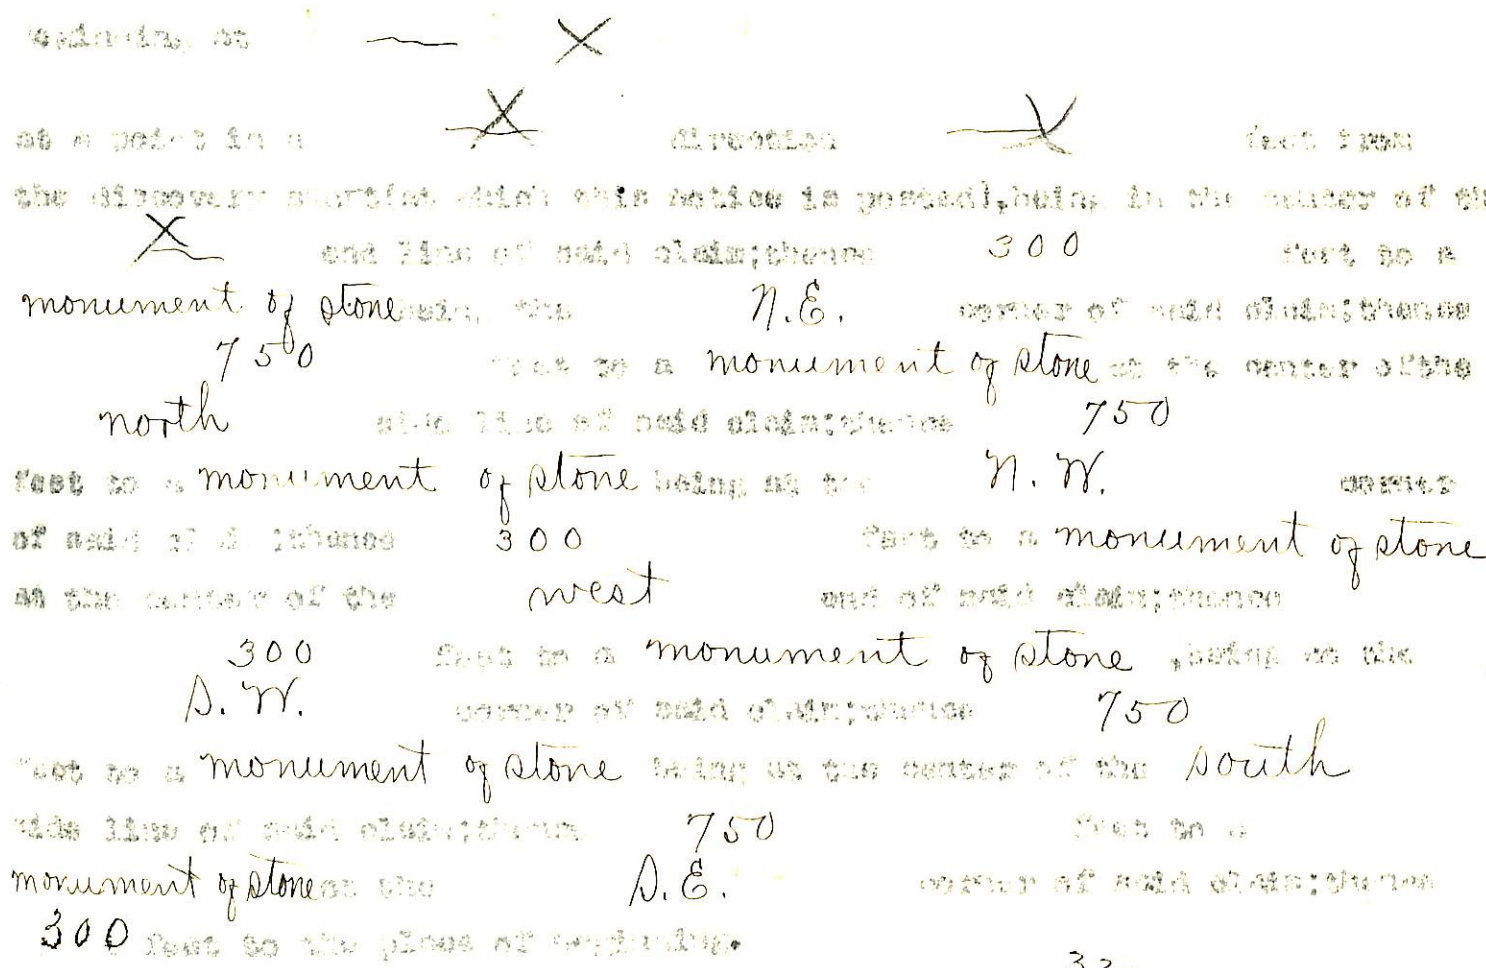 Beginning at — X
at a point in a — X direction — X feet from
the discovery shaft(at which this notice is posted),being in the center of the
— X end line of said claim;thence 300 feet to a
monument of stone being the N.E. corner of said claim;thence
750 feet to a monument of stone at the center ofthe
north side line of said claim;thence 750
feet to a monument of stone being at the N. W. corner
of said claim;thence 300 feet to a monument of stone
at the center of the west end of said claim;thence
300 feet to a monument of stone ,being at the
S. W. corner of said claim;thence 750
feet to a monument of stone being at the center of the south
side line of said claim;thence 750 feet to a
monument of stone at the S.E. corner of said claim;thence
300 feet to the place of beginning.